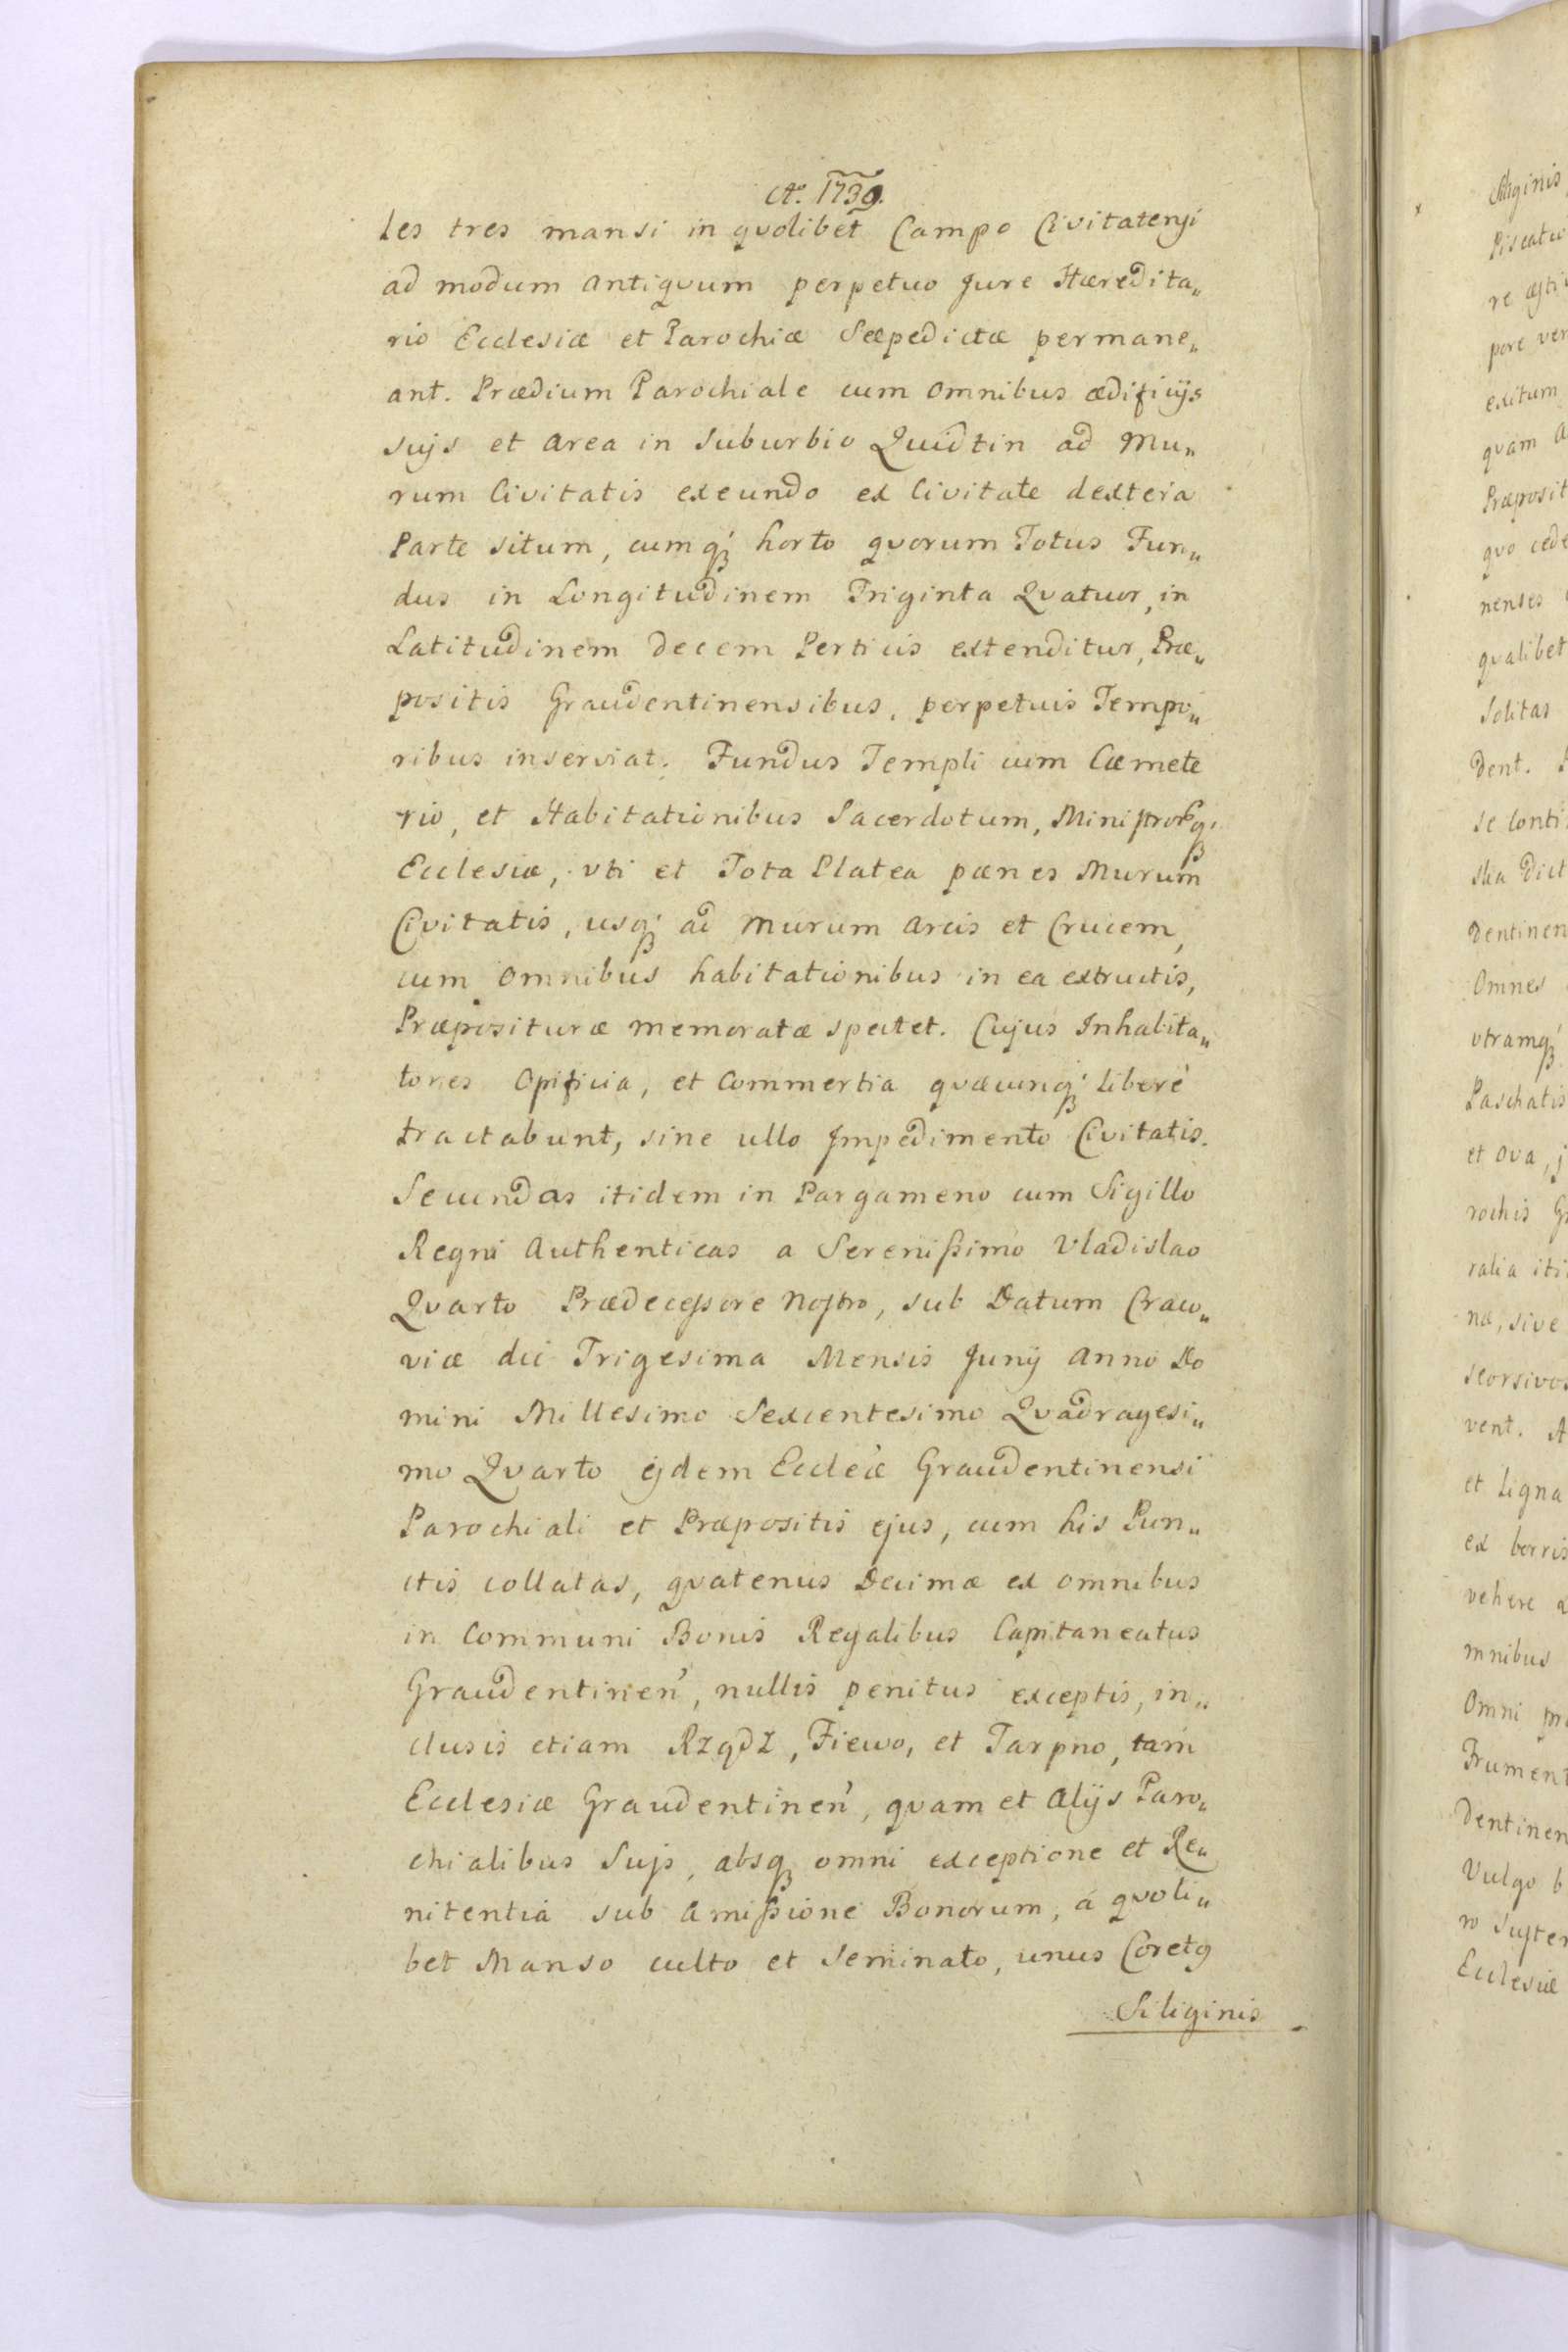 Aº. 1739.
les tres mansi in qvolibet Campo Civitatensi
ad modum antiqvum perpetuo Jure Hæredita„
rio Ecclesiæ et Parochiæ Sæpedictæ permane„
ant. Prædium Parochiale cum omnibus ædificijs
sujs et area in suburbio Quidtin ad Mu„
rum Civitatis exeundo ex Civitate dextera
Parte situm, cumq́ꝫ horto qvorum Totus Fun„
dus in Longitudinem Triginta Qvatuor, in
Latitudinem Decem Perticis extenditur, Præ„
positis Graudentinensibus, perpetuis Tempo„
ribus inserviat. Fundus Templi cum Cæmete
rio, et Habitationibus Sacerdotum, Ministrorꝫqꝫ
Ecclesiæ, vti et Tota Platea pænes Murum
Civitatis, usq́ꝫ ad murum arcis et Crucem,
cum omnibus habitationibus in ea extructis,
Præpositurae memoratæ spectet. Cujus Inhabita„
tores Opificia, et Commertia qvæcunq́ꝫ liberè
tractabunt, sine ullo Impedimento Civitatis.
Secundas itidem in Pargameno cum Sigillo
Regni Authenticas a Serenißimo Vladislao
Qvarto Prædecessore Nostro, sub Datum Craco„
viæ die Trigesima Mensis Junij Anno Do
mini Millesimo Sexcentesimo Qvadragesi„
mo Qvarto ejdem Eccleæ Graudentinensi
Parochiali et Præpositis ejus, cum his Pun„
ctis collatas, qvatenus Decimæ ex omnibus
in Communi Bonis Regalibus Capitaneatus
Graudentinen̉, nullis penitus exceptis, in„
clusis etiam RZqdZ, Fiewo, et Tarpno, tam
Ecclesiæ Graudentinen̉, qvam et alijs Paro„
chialibus Sujs, absqꝫ omni exceptione et Re„
nitentia sub amißione Bonorum, á qvoli„
bet Manso culto et seminato, unus Coretꝫ
Siliginis
Siliginis
Piscatu
re æsti
pore ver
exitum
qvam a
Præposit
qvo cede
nenses
qvalibet
Solitas
Dent.
se conti
ska Dict
Dentinen
Omnes
vtramq́ꝫ
Paschatis
et ova, j
rochis G
ralia iti
næ, sive
seorsivos
vent. A
et Ligna
ex borris
vehere
mnibus
Omni m
Frument
Dentinen
Vulgo b
ro Susten
Ecclesiæ